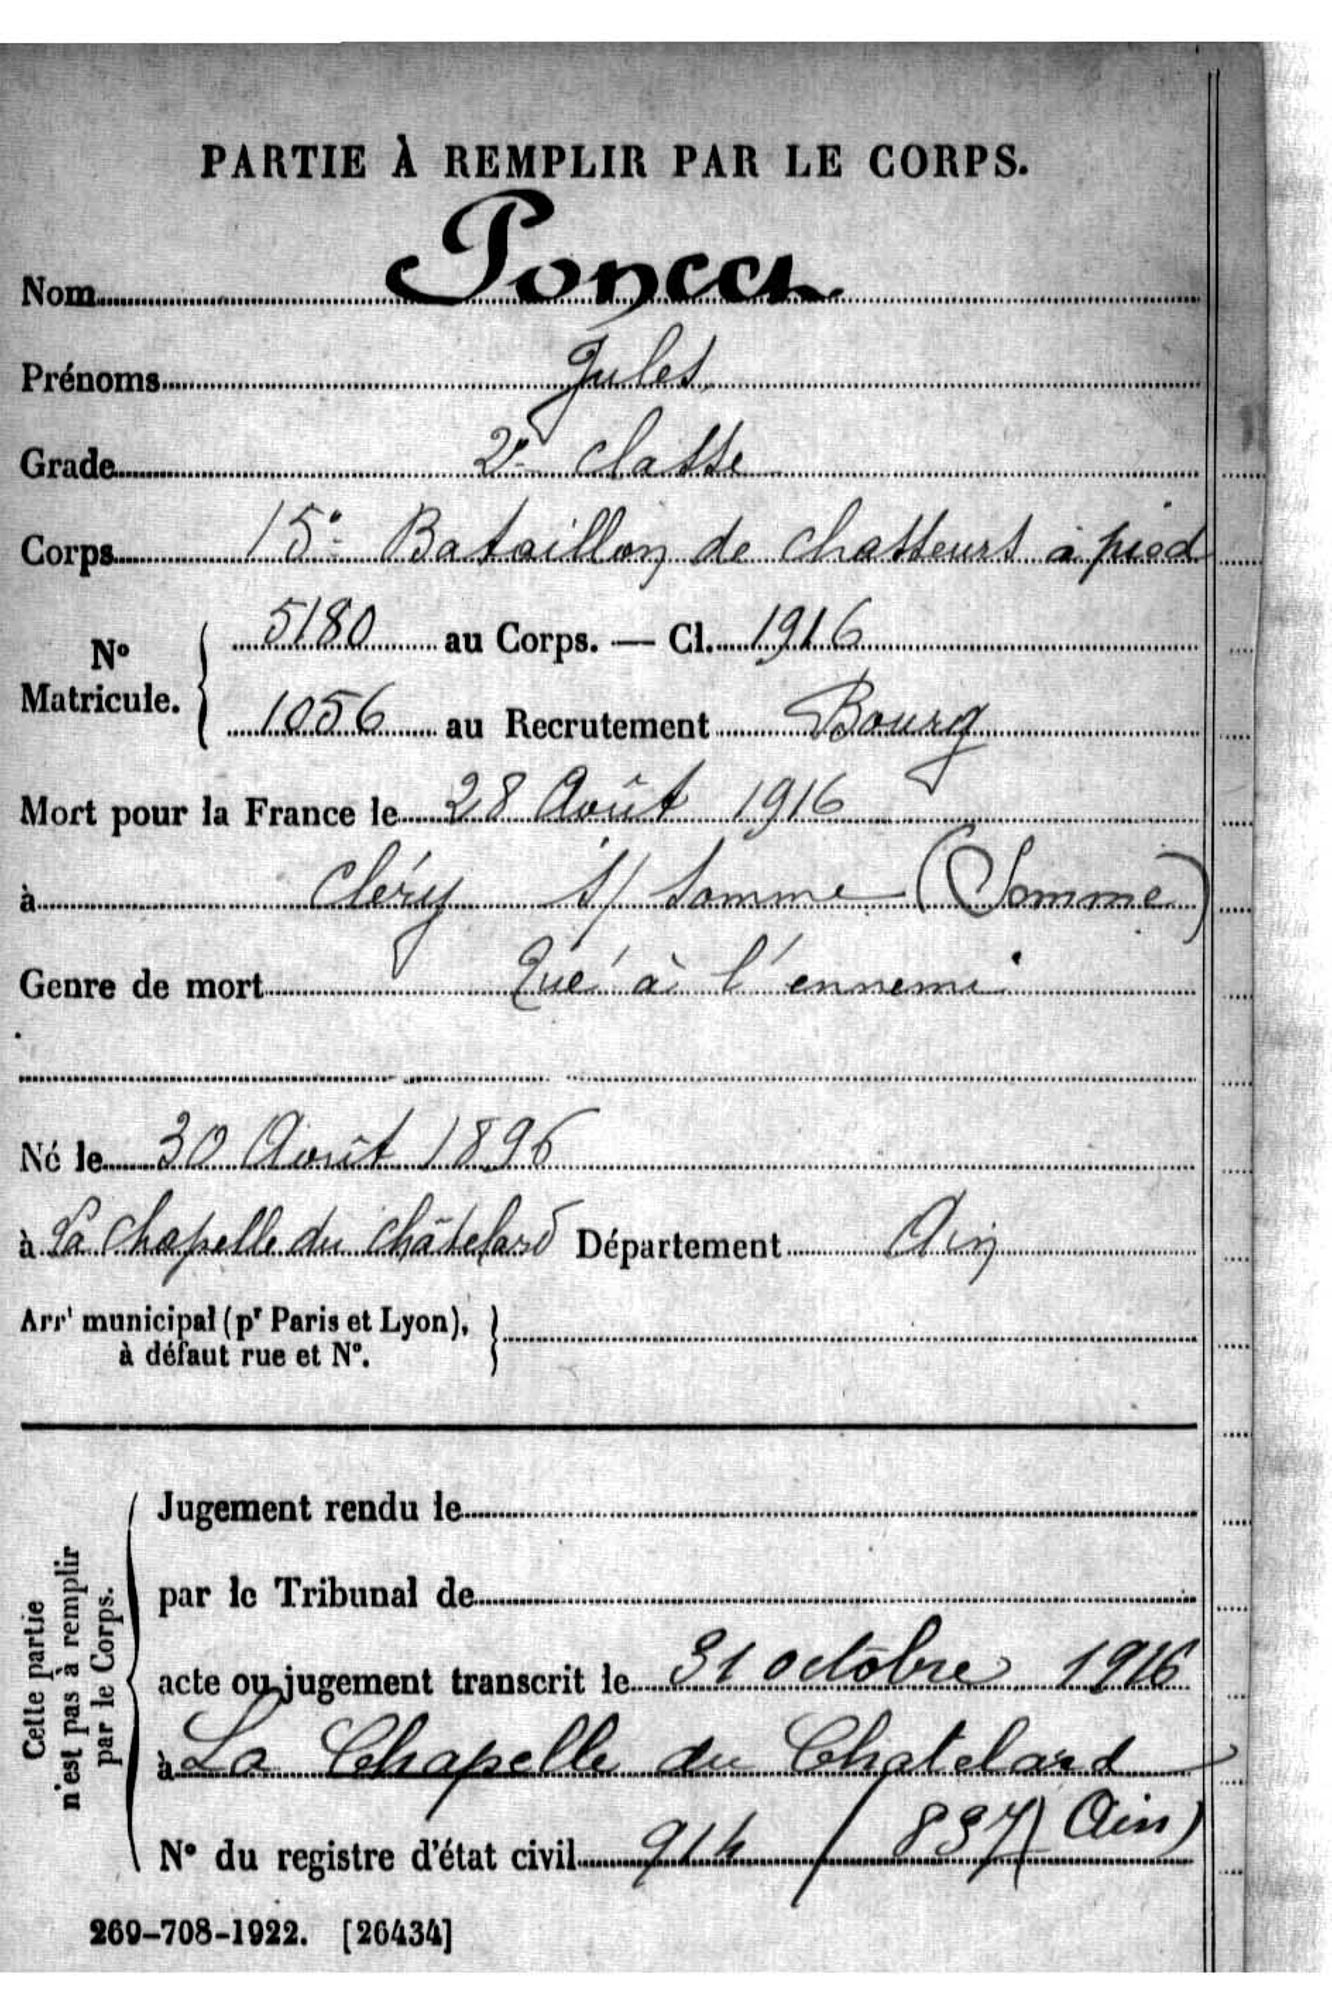 PARTIE À REMPLIR PAR LE CORPS.
Nom Poncet
Prénoms Jules
Grade 2e classe
Corps 15e Bataillon de chasseurs à pied
N° Matricule. 5180 au Corps. — Cl. 1916
1056 au Recrutement Bourg
Mort pour la France le 28 Août 1916
à Cléry s/ Somme (Somme)
Genre de mort Tué à l'ennemi
Né le 30 Août 1896
à La Chapelle du Châtelard Département Ain
Arrt municipal (pr Paris et Lyon),
à défaut rue et N°.
Cette partie
n'est pas à remplir
par le Corps.
Jugement rendu le
par le Tribunal de
acte ou jugement transcrit le 31 octobre 1916
à La Chapelle du Chatelard
(Ain)
N° du registre d'état civil 914 / 837
269-708-1922. [26434]